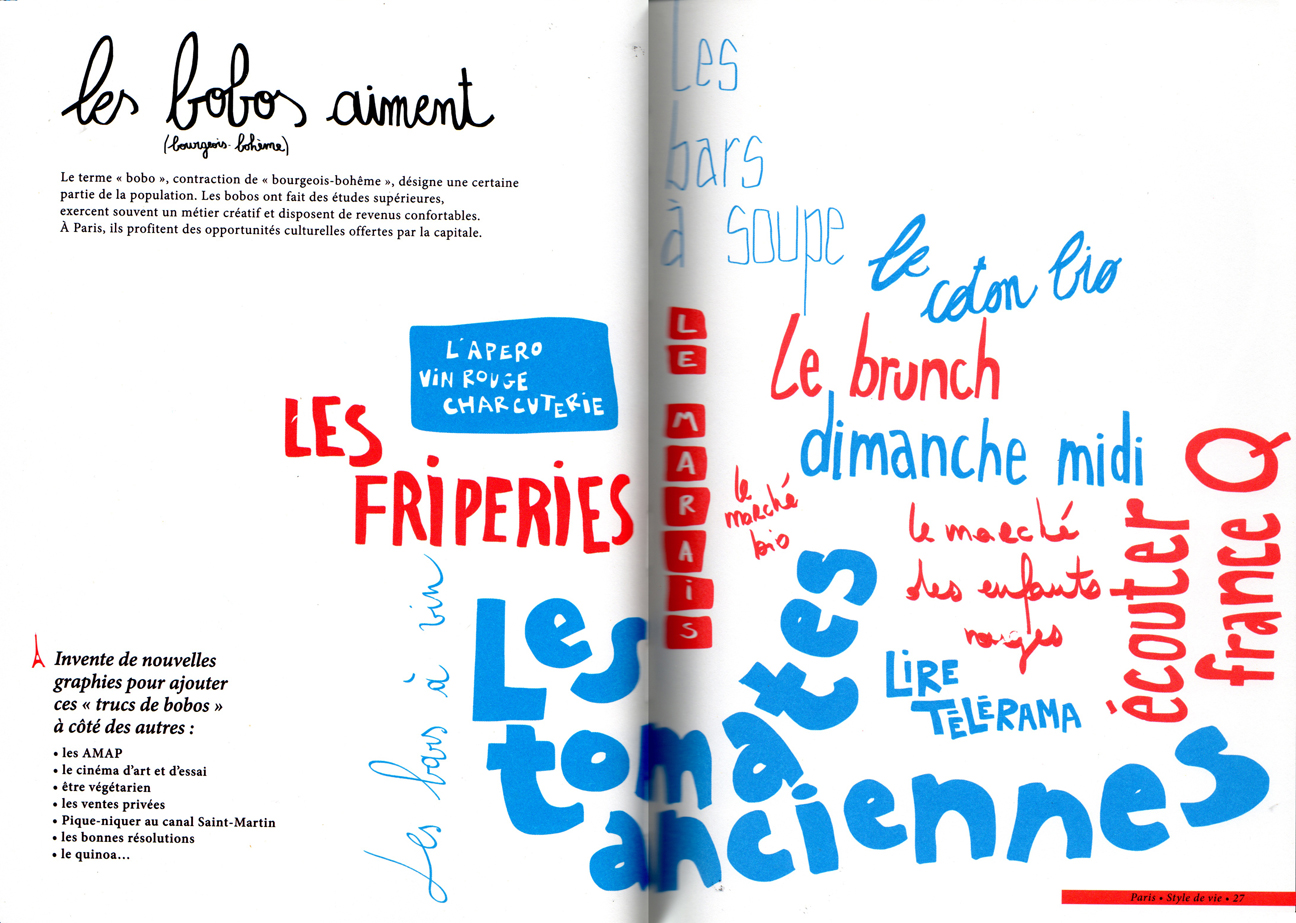 les bobos aiment
(bourgeois-bohème)
Le terme « bobo », contraction de « bourgeois-bohême », désigne une certaine
partie de la population. Les bobos ont fait des études supérieures,
exercent souvent un métier créatif et disposent de revenus confortables.
À Paris, ils profitent des opportunités culturelles offertes par la capitale.
L'APERO
ViN ROUGE
CHARCUTERiE
LES
FRiPERiES
Les bars à vin
Invente de nouvelles
graphies pour ajouter
ces « trucs de bobos »
à côté des autres :
• les AMAP
• le cinéma d'art et d'essai
• être végétarien
• les ventes privées
• Pique-niquer au canal Saint-Martin
• les bonnes résolutions
• le quinoa...
Les
bars
à soupe
le
coton bio
LE MARAiS
Le brunch
dimanche midi
le
marché
bio
le marché
des enfants
rouges
écouter
france Q
LiRE
TÉLÉRAMA
Les
tomates
anciennes
Paris • Style de vie • 27